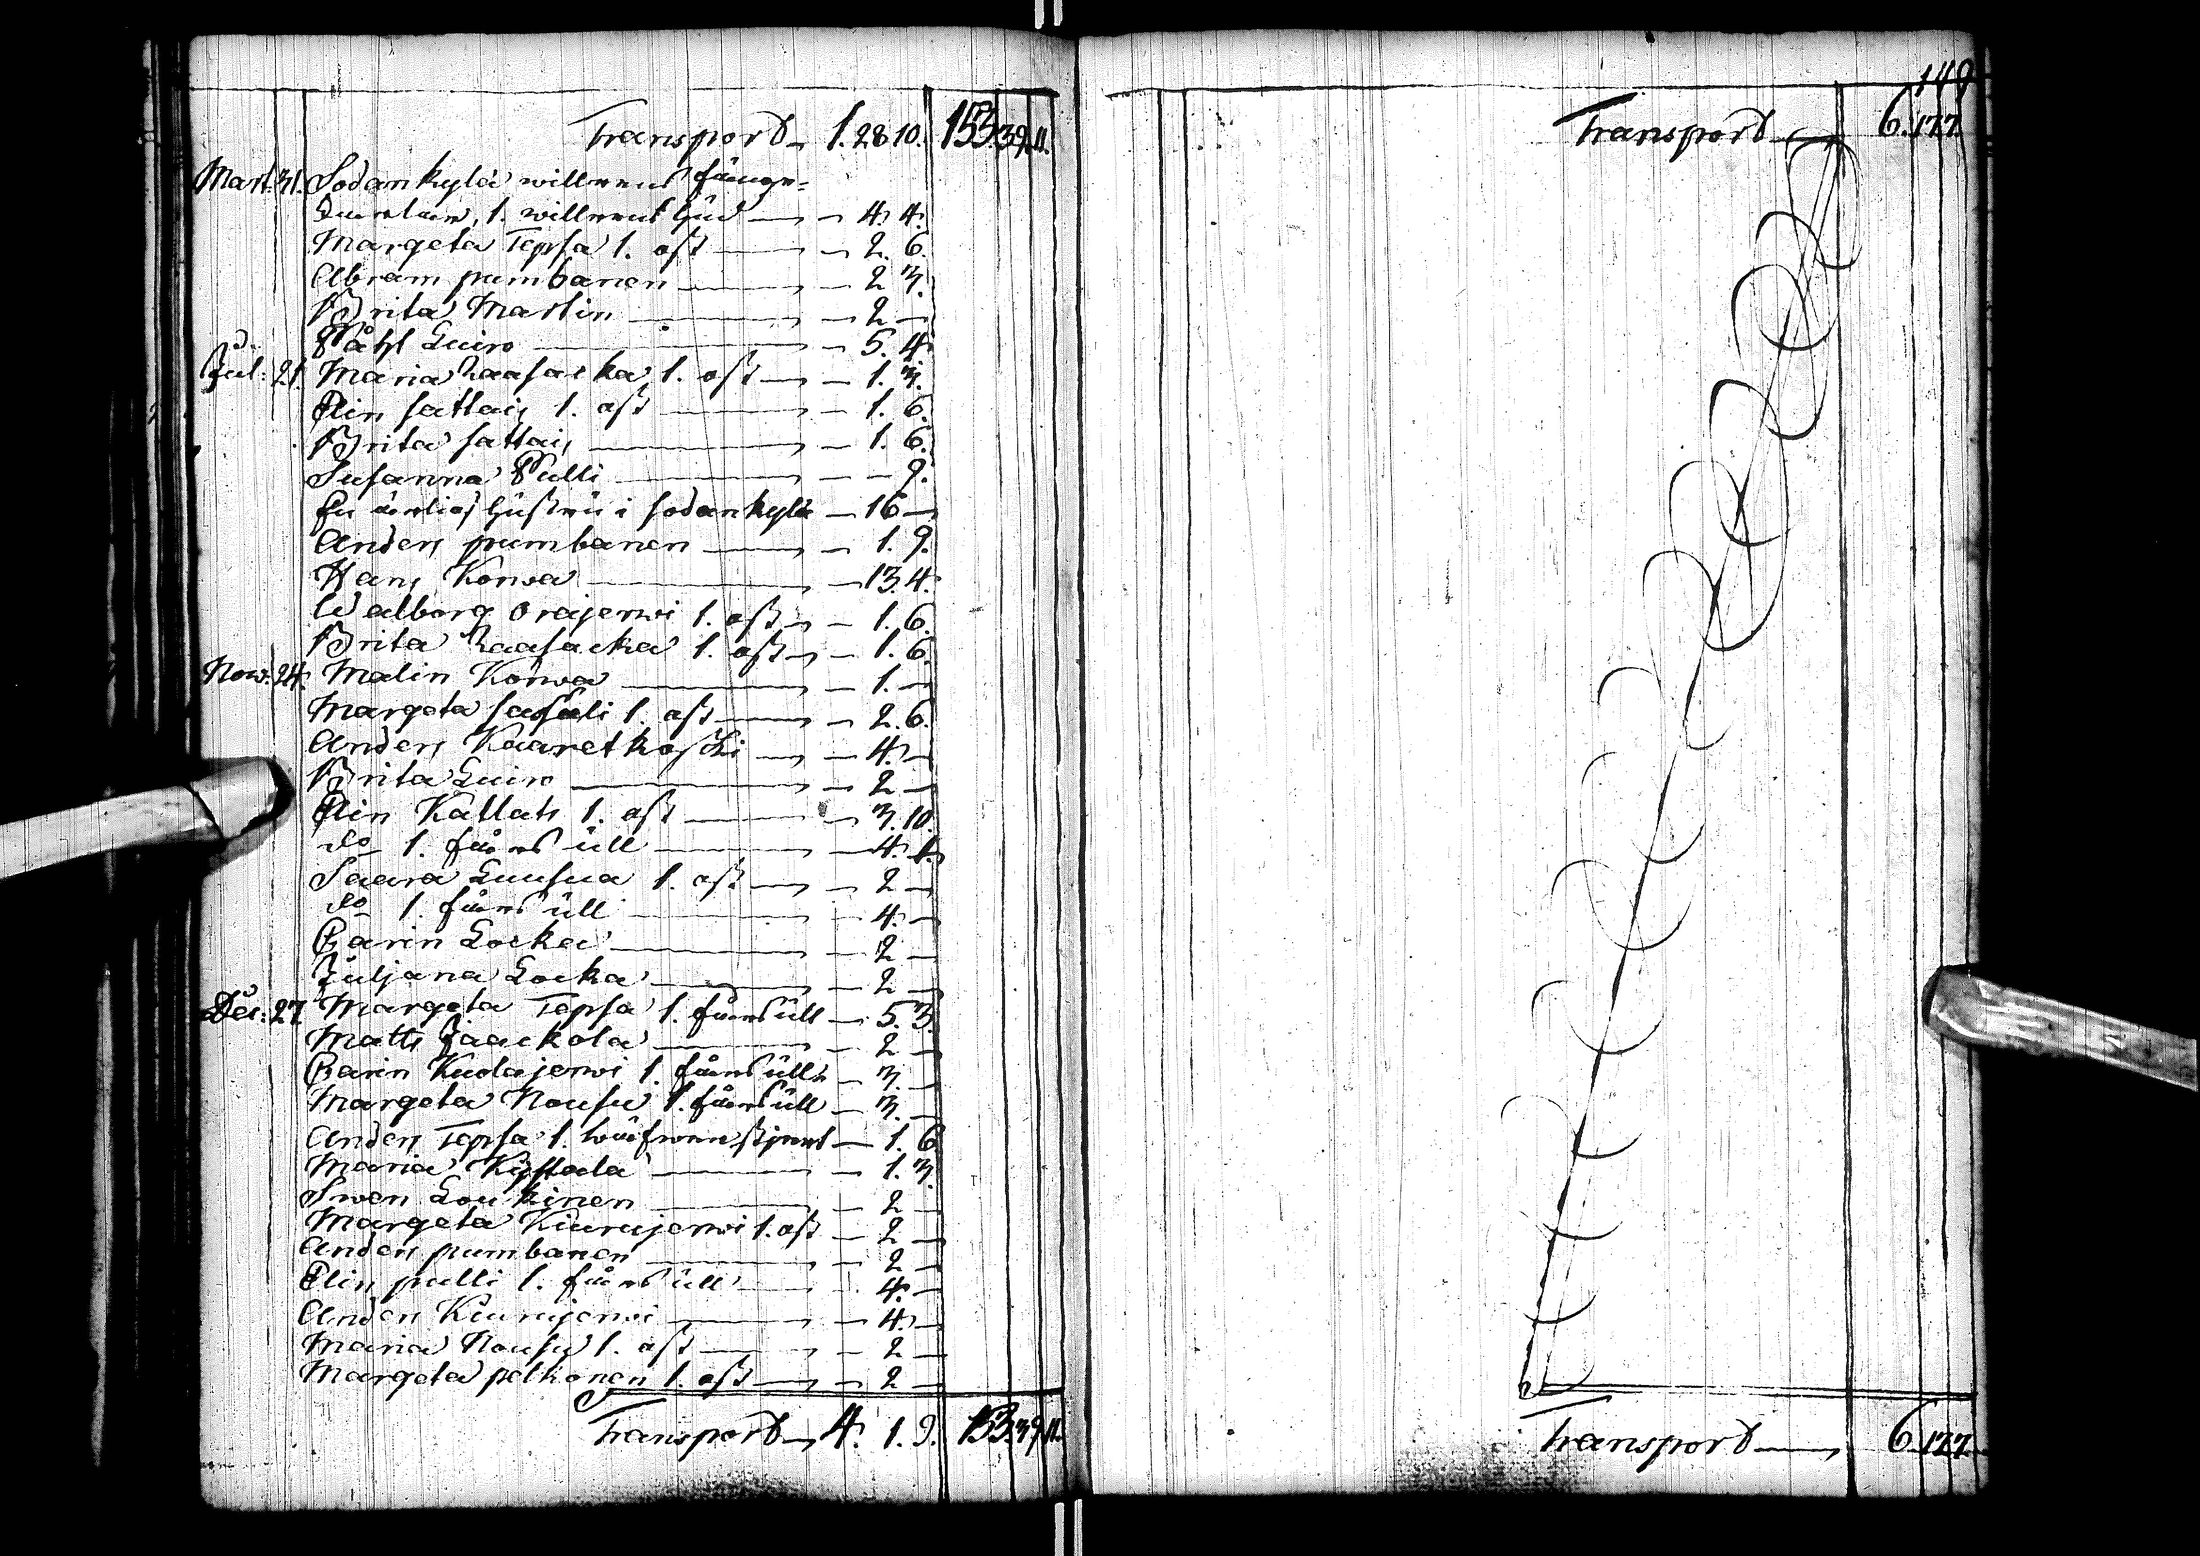 Transport 1. 28 10. 153. 39. 11.
Mart. 31. Sodankylä willrens fånge-
1. willrens hud 4. 4.
Margeta Tepsa 1. ost 2. 6.
Abram pumbanen 2 3.
Brita Martin 2
Påhl Luiro 5. 4.
Jul: 21. Maria Raasacka 1. ost 1. 3.
Elin sattais 1. ost 1. 6.
Brita sattais 1. 6.
Susanna Pulli 9.
En i sodankylä 16
Anders pumbanen 1. 9.
Hans Korwa 13. 4.
Walborg orajerwi 1. ost 1. 6.
Brita Raasacka 1. ost 1. 6.
Now: 24. Malin Korwa 1.
Margeta 1. ost 2. 6.
Anders Kaaretkoski 4.
Brita Luiro 2
Elin Kallats 1. ost 3. 10.
do 1. fårs ull 4. 1.
Saara Luusua 1. ost 2
do 1. fårs ull 4.
Carin Locka 2
Juljana Locka 2
Dec: 27 Margeta Tepsa 1. fårs ull 5. 3.
Matts Jaackola 2
Carin Kuolajerwi 1. fårs ull 3.
Margeta Nousu 1. fårs ull 3.
Anders Tepsa 1. 1. 6
Maria 1. 3.
Swen Loukinen 2
Margeta Kiurujerwi 1. ost 2
Anders pumbanen 2
Elin pulli 1. fårs ull 4.
Anders Kiurujerwi 4.
Maria Nousu 1. ost 2
Margeta pelkonen 1. ost 2
Transport 4. 1. 9. 153. 39. 11.
149
Transport 6. 177.
Transport 6. 177.